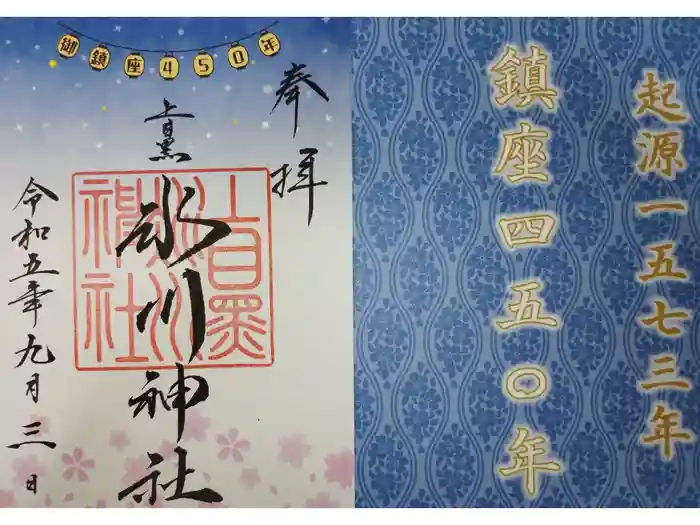 起源一五七三年
鎮座四五〇年
御鎮座450年
奉拝
上目黒
氷川神社
上目黒氷川神社
令和五年九月三日